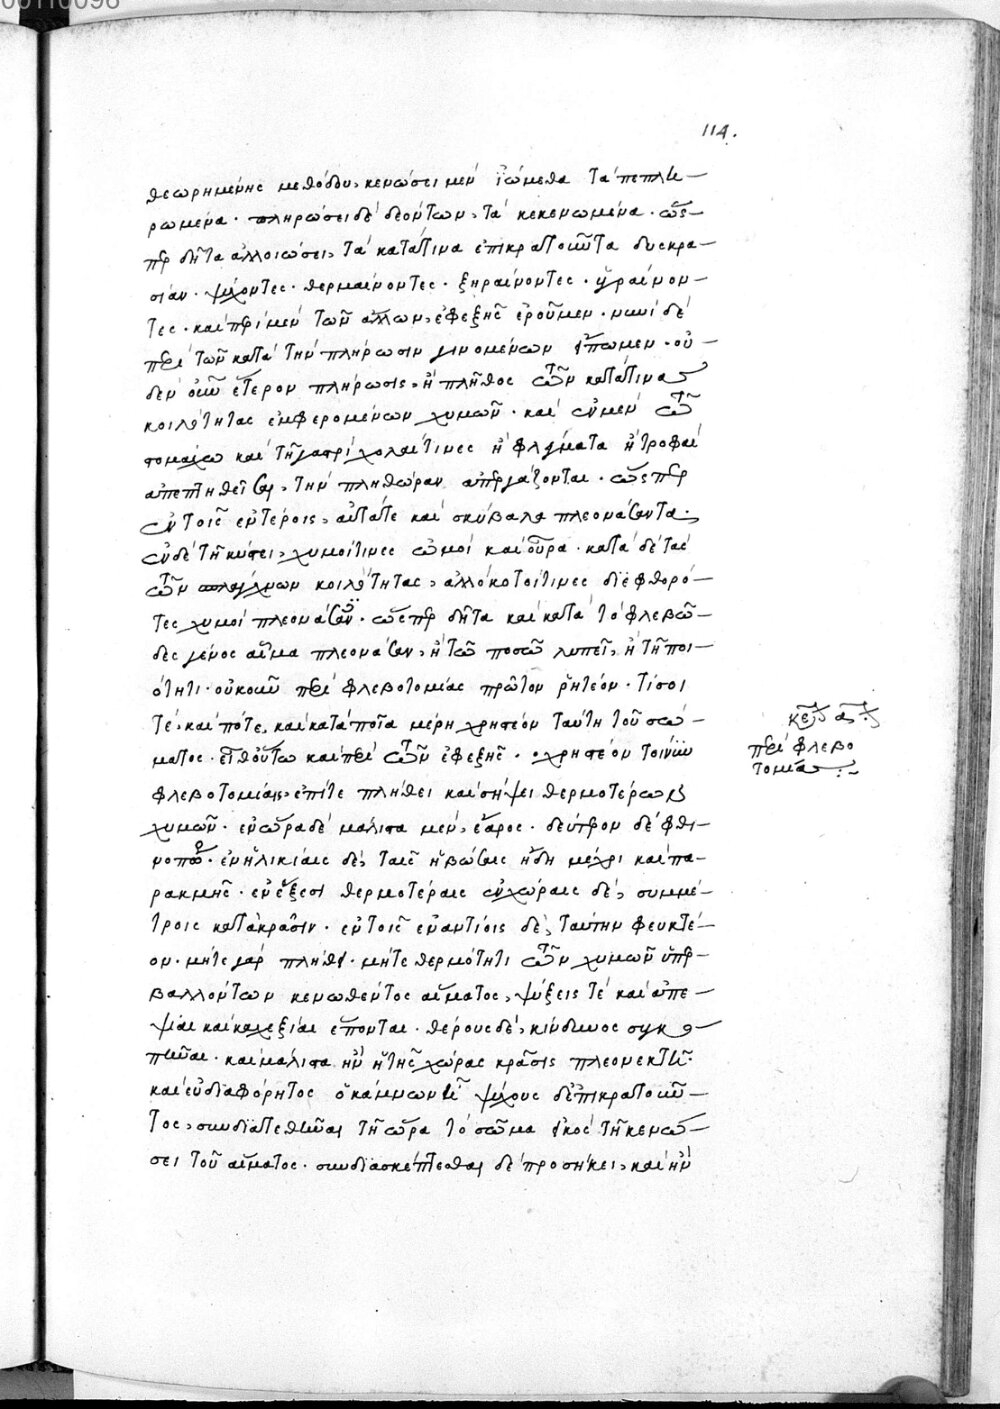 00110098
114.
θεωρημένης μεθόδου, κενώσει μὲν ἰώμεθα τὰ πεπλη-
ρωμένα· πληρώσει δὲ δεόντων, τὰ κεκενωμένα· ὥς-
περ δῆτα ἀλλοιώσει, τὰ κατά τινα ἐπικρατοῦντα δυσκρα-
σίαν· ψύχοντες· θερμαίνοντες· ξηραίνοντες· ὑγραίνον-
τες· καὶ περὶ μὲν τῶν ἄλλων, ἐφεξῆς ἐροῦμεν· νυνὶ δὲ
περὶ τῶν κατὰ τὴν πλήρωσιν γινομένων εἴπωμεν· οὐ-
δὲν οὖν ἕτερον πλήρωσις, ἢ πλῆθος τῶν κατά τινας
κοιλότητας ἐμφερομένων χυμῶν· καὶ ἐν μὲν τῷ
στομάχῳ καὶ τῇ γαστρὶ χολαί τινες ἢ φλέγματα ἢ τροφαὶ
ἀπεπτηθεῖσαι, τὴν πληθώραν ἀπεργάζονται· ὥσπερ
ἐν τοῖς ἐντέροις, αὐτά τε καὶ σκύβαλα πλεονάσαντα·
ἐν δὲ τῇ κύστει, χυμοί τινες ὠμοὶ καὶ οὖρα· κατὰ δὲ τὰς
τῶν κοιλότητας, ἀλλόκοτοί τινες διεφθορό-
τες χυμοὶ πλεονάζουν· ὥσπερ δῆτα καὶ κατὰ τὸ φλεβῶ-
δες γένος αἷμα πλεονάσαν, ἢ τῷ ποσῷ λυπεῖ, ἢ τῇ ποι-
ότητι· οὐκοῦν περὶ φλεβοτομίας πρῶτον ῥητέον· τίσι
τέ, καὶ πότε, καὶ κατὰ ποῖα μέρη χρηστέον ταύτῃ τοῦ σώ-
ματος· εἶθ οὕτω καὶ περὶ τῶν ἐφεξῆς· χρηστέον τοίνυν
φλεβοτομίας, ἐπί τε πλήθει καὶ σήψει θερμοτέρων
χυμῶν· ἐν ὥρᾳ δὲ μάλιστα μὲν, ἔαρος· δεύτερον δὲ φθι-
νοπώρου· ἐν ἡλικίαις δὲ, ταῖς ἡβώσαις ἤδη μέχρι καὶ πα-
ρακμῆς· ἐν ἕξεσι θερμοτέραις ἐν χώραις δὲ, συμμέ-
τροις κατὰ κρᾶσιν· ἐν τοῖς ἐναντίοις δὲ, ταύτην φευκτέ-
ον· μήτε γὰρ πλήθει· μήτε θερμότητι τῶν χυμῶν ὑπερ-
βαλλόντων κενωθέντος αἵματος, ψύξεις τὲ καὶ ἀπε-
ψίαι καὶ καχεξίαι ἕπονται· θέρους δὲ, κίνδυνος συγκο-
πῆναι· καὶ μάλιστα ἢν ἡ τῆς χώρας κρᾶσις πλεονεκτῇ·
καὶ εὐδιαφόρητος ὁ κάμνων ᾖ ψύχους δ' ἐπικρατοῦν-
τος, συνδιατεθῆναι τῇ ὥρᾳ τὸ σῶμα εἰκὸς τῇ κενώ-
σει τοῦ αἵματος· συνδιασκέπτεσθαι δὲ προσήκει, καὶ ἢν
περὶ φλεβο
τομίας